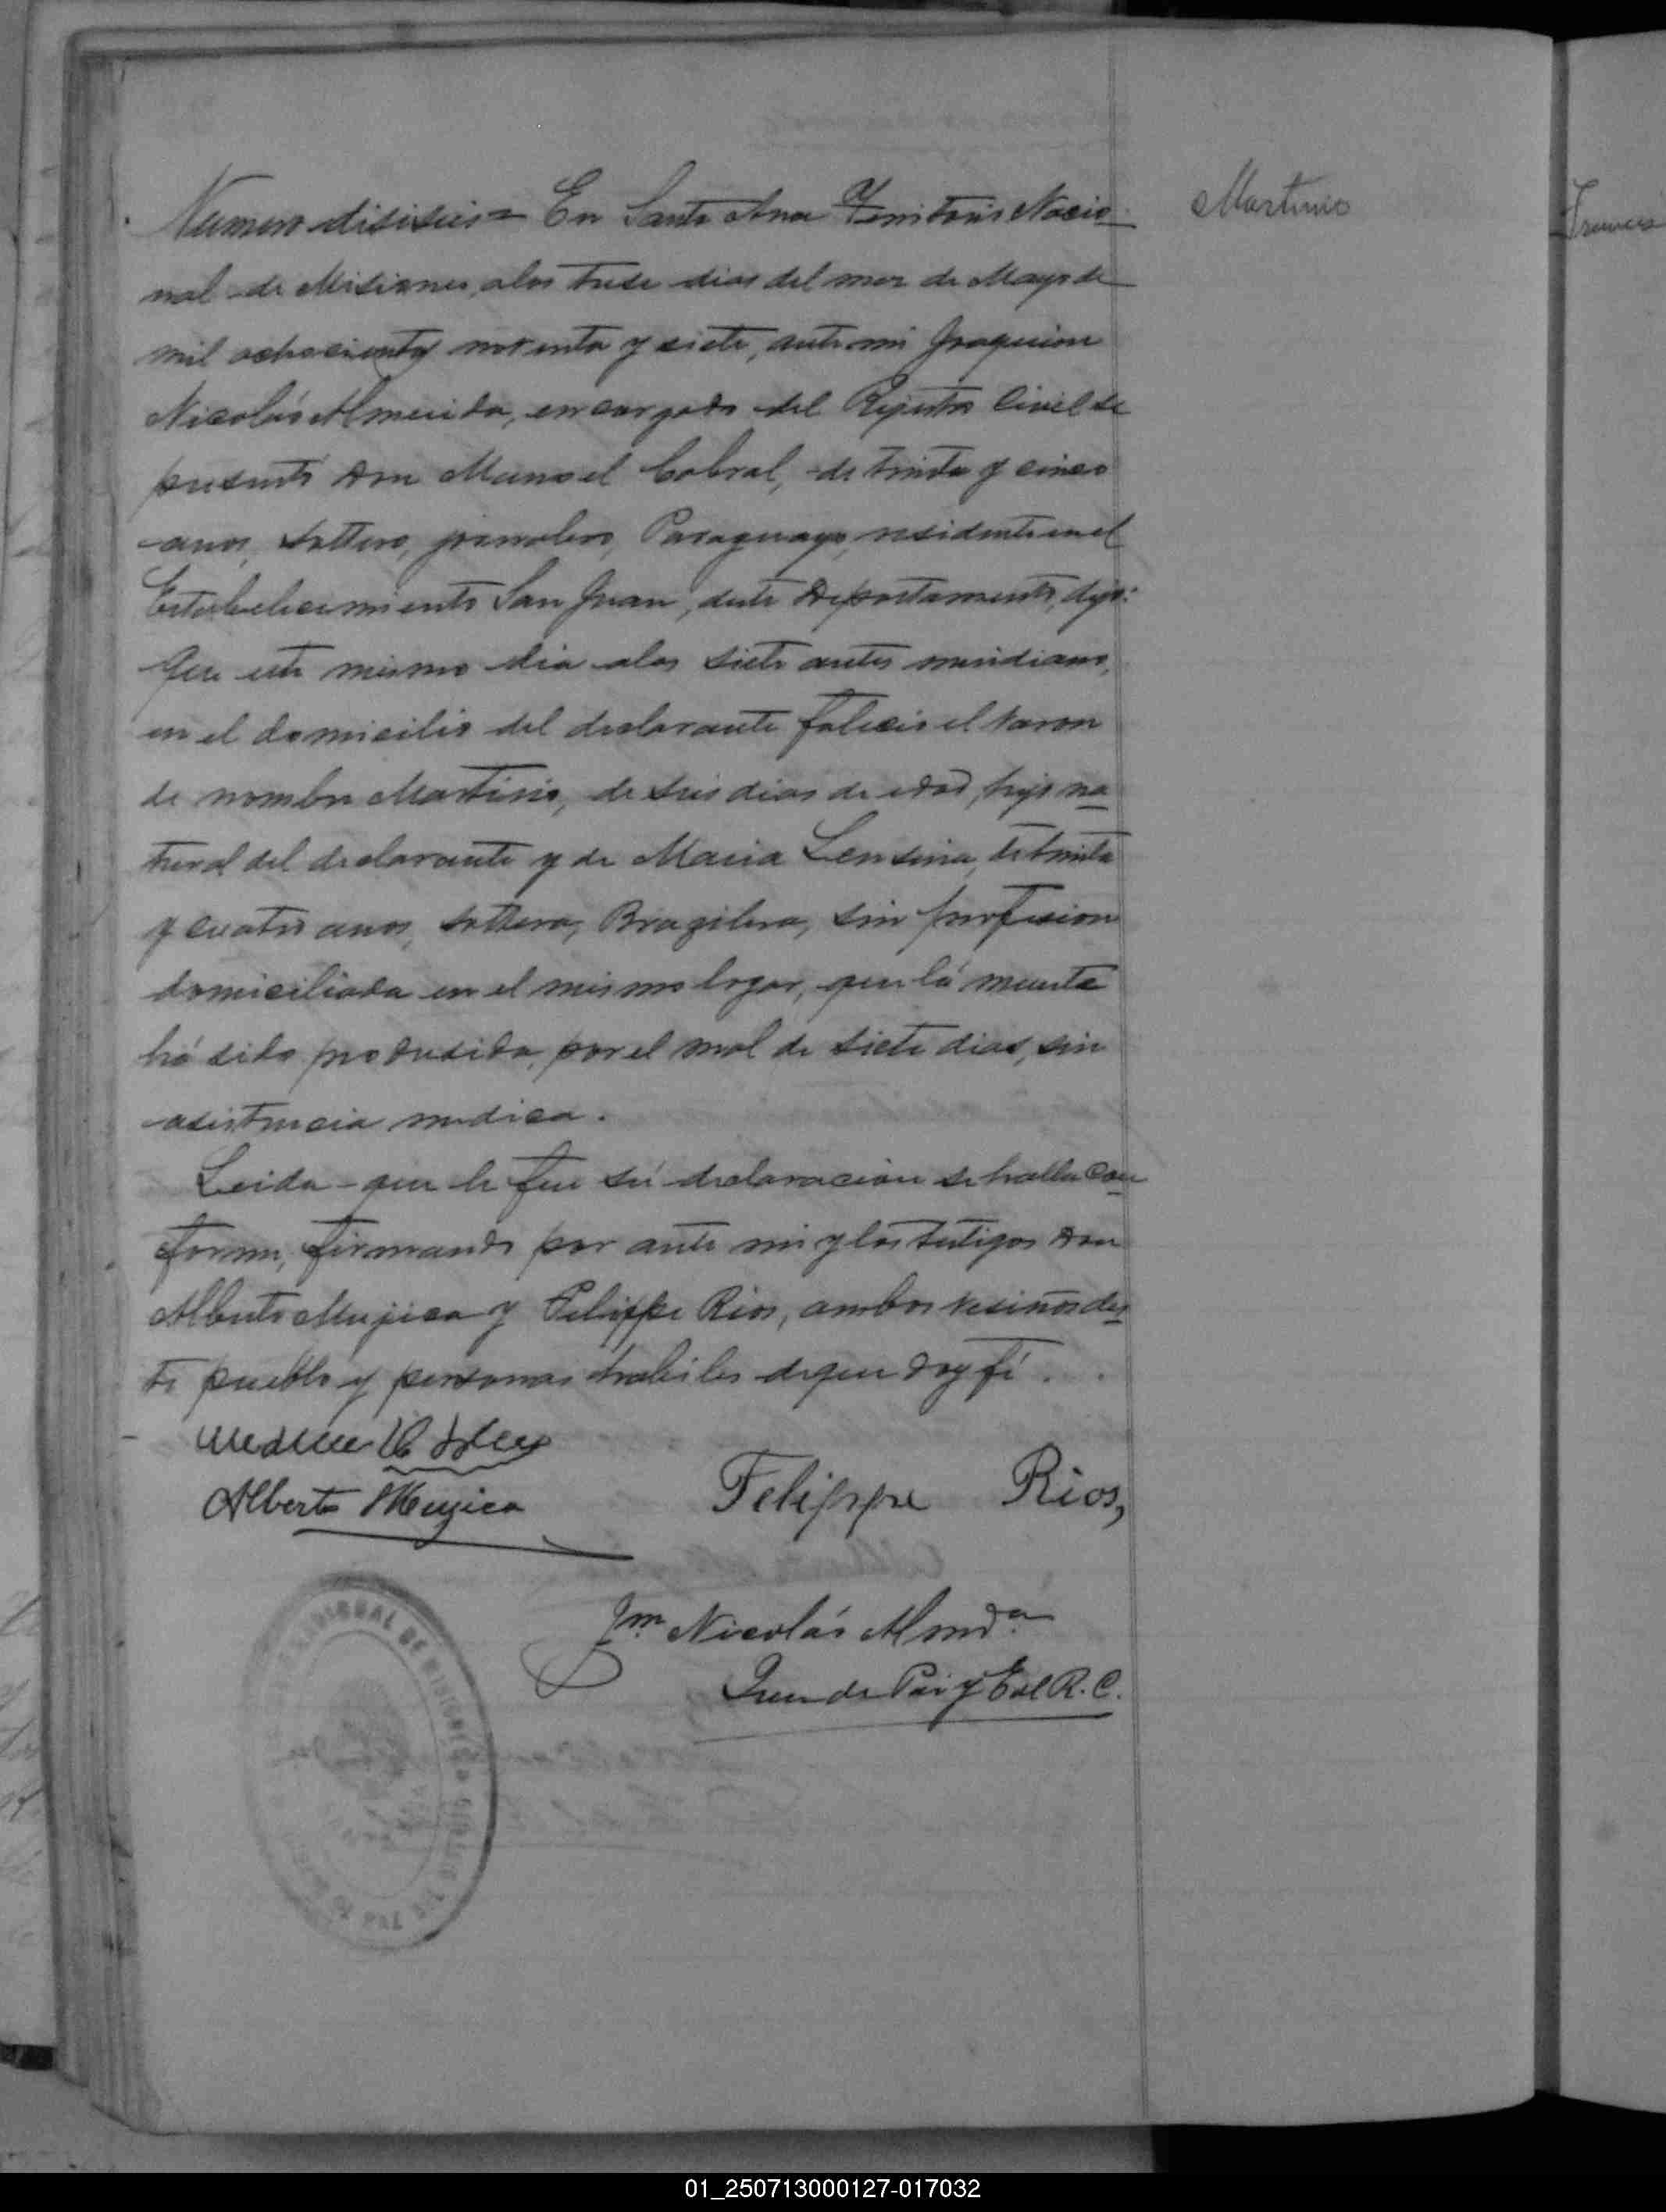 Martinio
Numero disiseis = En Santa Ana Territorio Nacio-
nal de Misiones, alos trese dias del mez de Mayo de
mil ochocientos noventa y siete, ante mi Joaquion
Nicolás Almeida, encargado del Rejistro Civil se
presentó Don Manoel Cabral, de trinta y cinco
anos, soltero, jornalero, Paraguayo, residente en el
Establecimiento San Juan, deste Departamento, dijo:
Que este mismo dia alas siete antes meridiano,
en el domicilio del declarante falecio el varon
de nombre Martinio, de seis dias de edad, hijo na-
tural del declarante y de Maria Lensina, de trinta
y cuatro anos, soltera, Brazilera, sin profesion
domiciliada en el mismo logar, que la muerte
há sido produsida, por el mal de siete dias, sin
asistencia medica.
Leida que le fue sú declaracion se halla con-
forme, firmando por ante mi y los testigos Don
Alberto Mujica y Felippe Rios, ambos vesinos des-
te pueblo y personas habiles de que doy fé.
Alberto Mugica
Felippe Rios,
Jm. Nicolás Almda
Jues de Paz y E. del R. C.
DE MISIONES
01_250713000127-017032